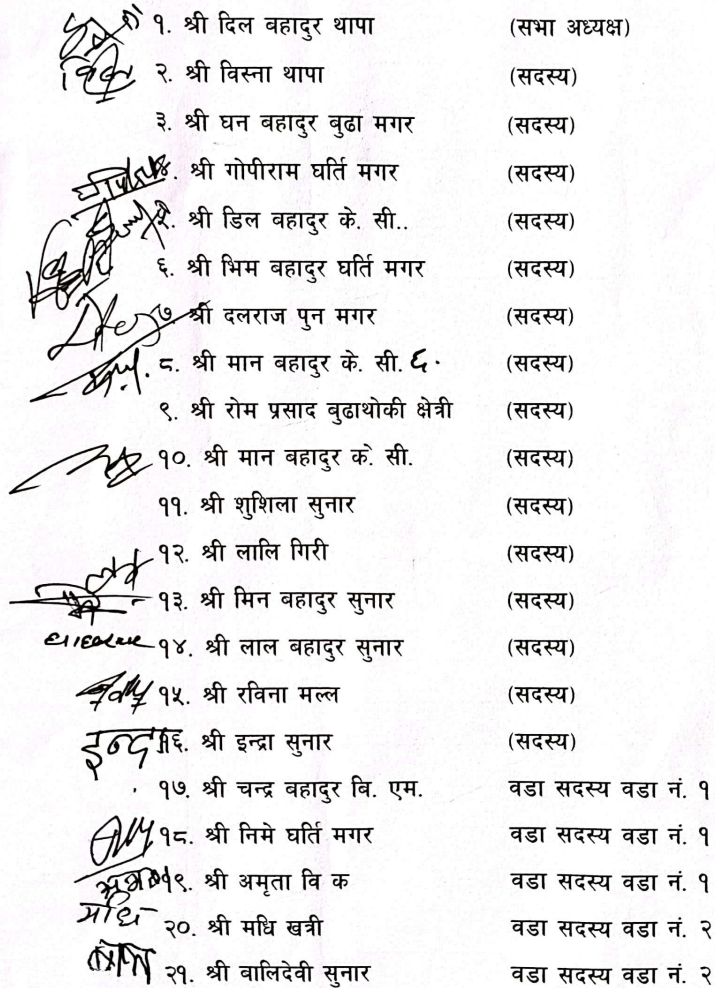 १. श्री दिल वहादुर थापा (सभा अध्यक्ष)
२. श्री विस्ना थापा (सदस्य)
३. श्री घन वहादुर वुढा मगर (सदस्य)
४. श्री गोपीराम घर्ति मगर (सदस्य)
५. श्री डिल वहादुर के. सी.. (सदस्य)
६. श्री भिम बहादुर घर्ति मगर (सदस्य)
७ श्री दलराज पुन मगर (सदस्य)
८. श्री मान बहादुर के. सी. ६. (सदस्य)
९. श्री रोम प्रसाद बुढाथोकी क्षेत्री (सदस्य)
१०. श्री मान बहादुर के. सी. (सदस्य)
११. श्री शुशिला सुनार (सदस्य)
१२. श्री लालि गिरी (सदस्य)
१३. श्री मिन बहादुर सुनार (सदस्य)
१४. श्री लाल बहादुर सुनार (सदस्य)
१५. श्री रविना मल्ल (सदस्य)
इन्द्र १६. श्री इन्द्रा सुनार (सदस्य)
१७. श्री चन्द्र बहादुर बि. एम. वडा सदस्य वडा नं. १
१८. श्री निमे घर्ति मगर वडा सदस्य वडा नं. १
१९. श्री अमृता वि क वडा सदस्य वडा नं. १
मधि २०. श्री मधि खत्री वडा सदस्य वडा नं. २
२१. श्री वालिदेवी सुनार वडा सदस्य वडा नं. २